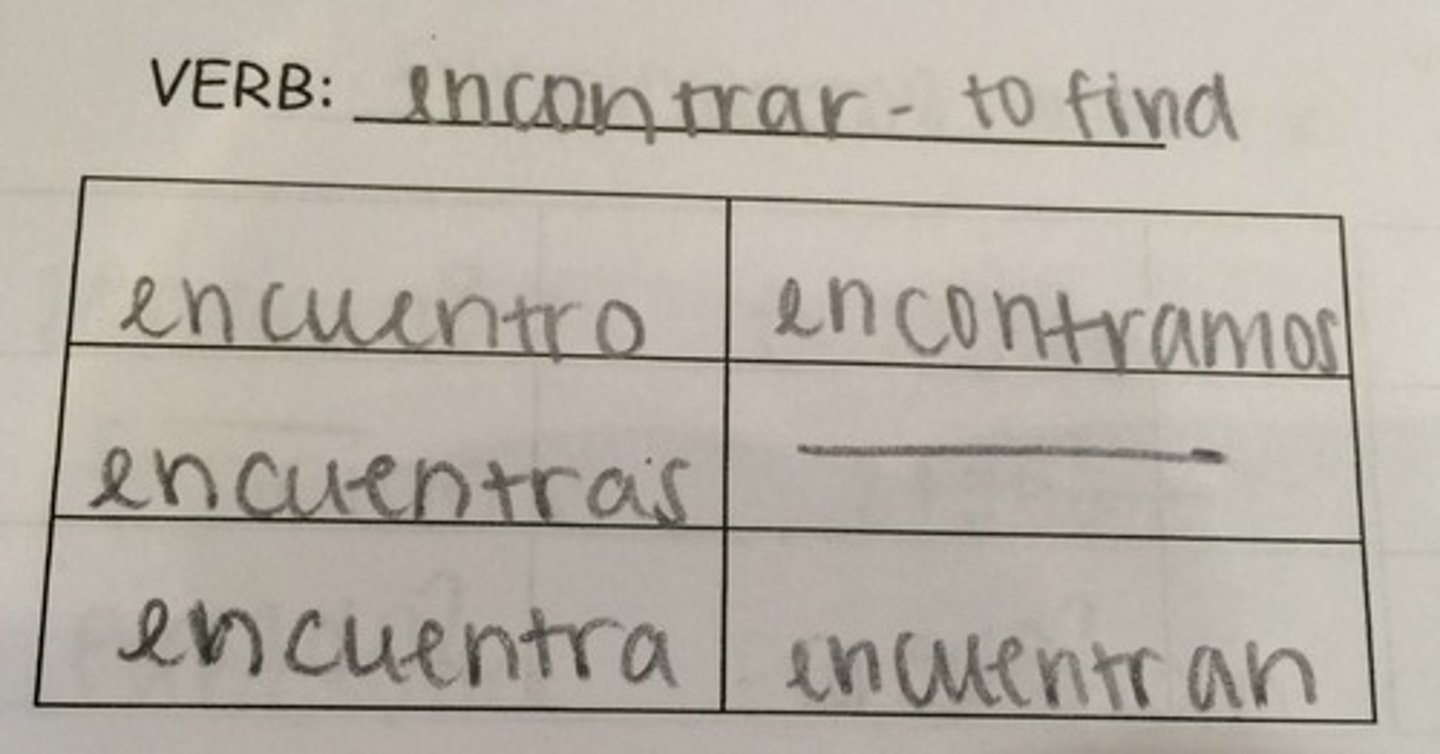 VERB: encontrar - to find
encuentro encontramos
encuentras
encuentra encuentran